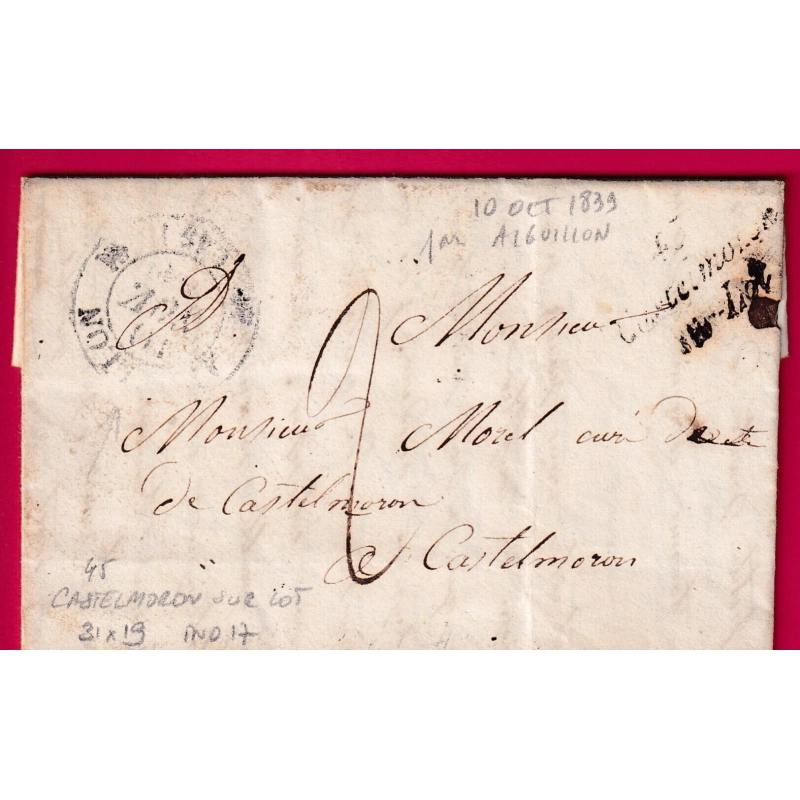 10 OCT 1839
pr AIGUILLON
45
Castelmoron
sur-Lot
P.D. Monsieur
2
Monsieur Morel curé
de Castelmoron
" a Castelmoron
45
CASTELMORON SUR LOT
31 x 19 IND 17